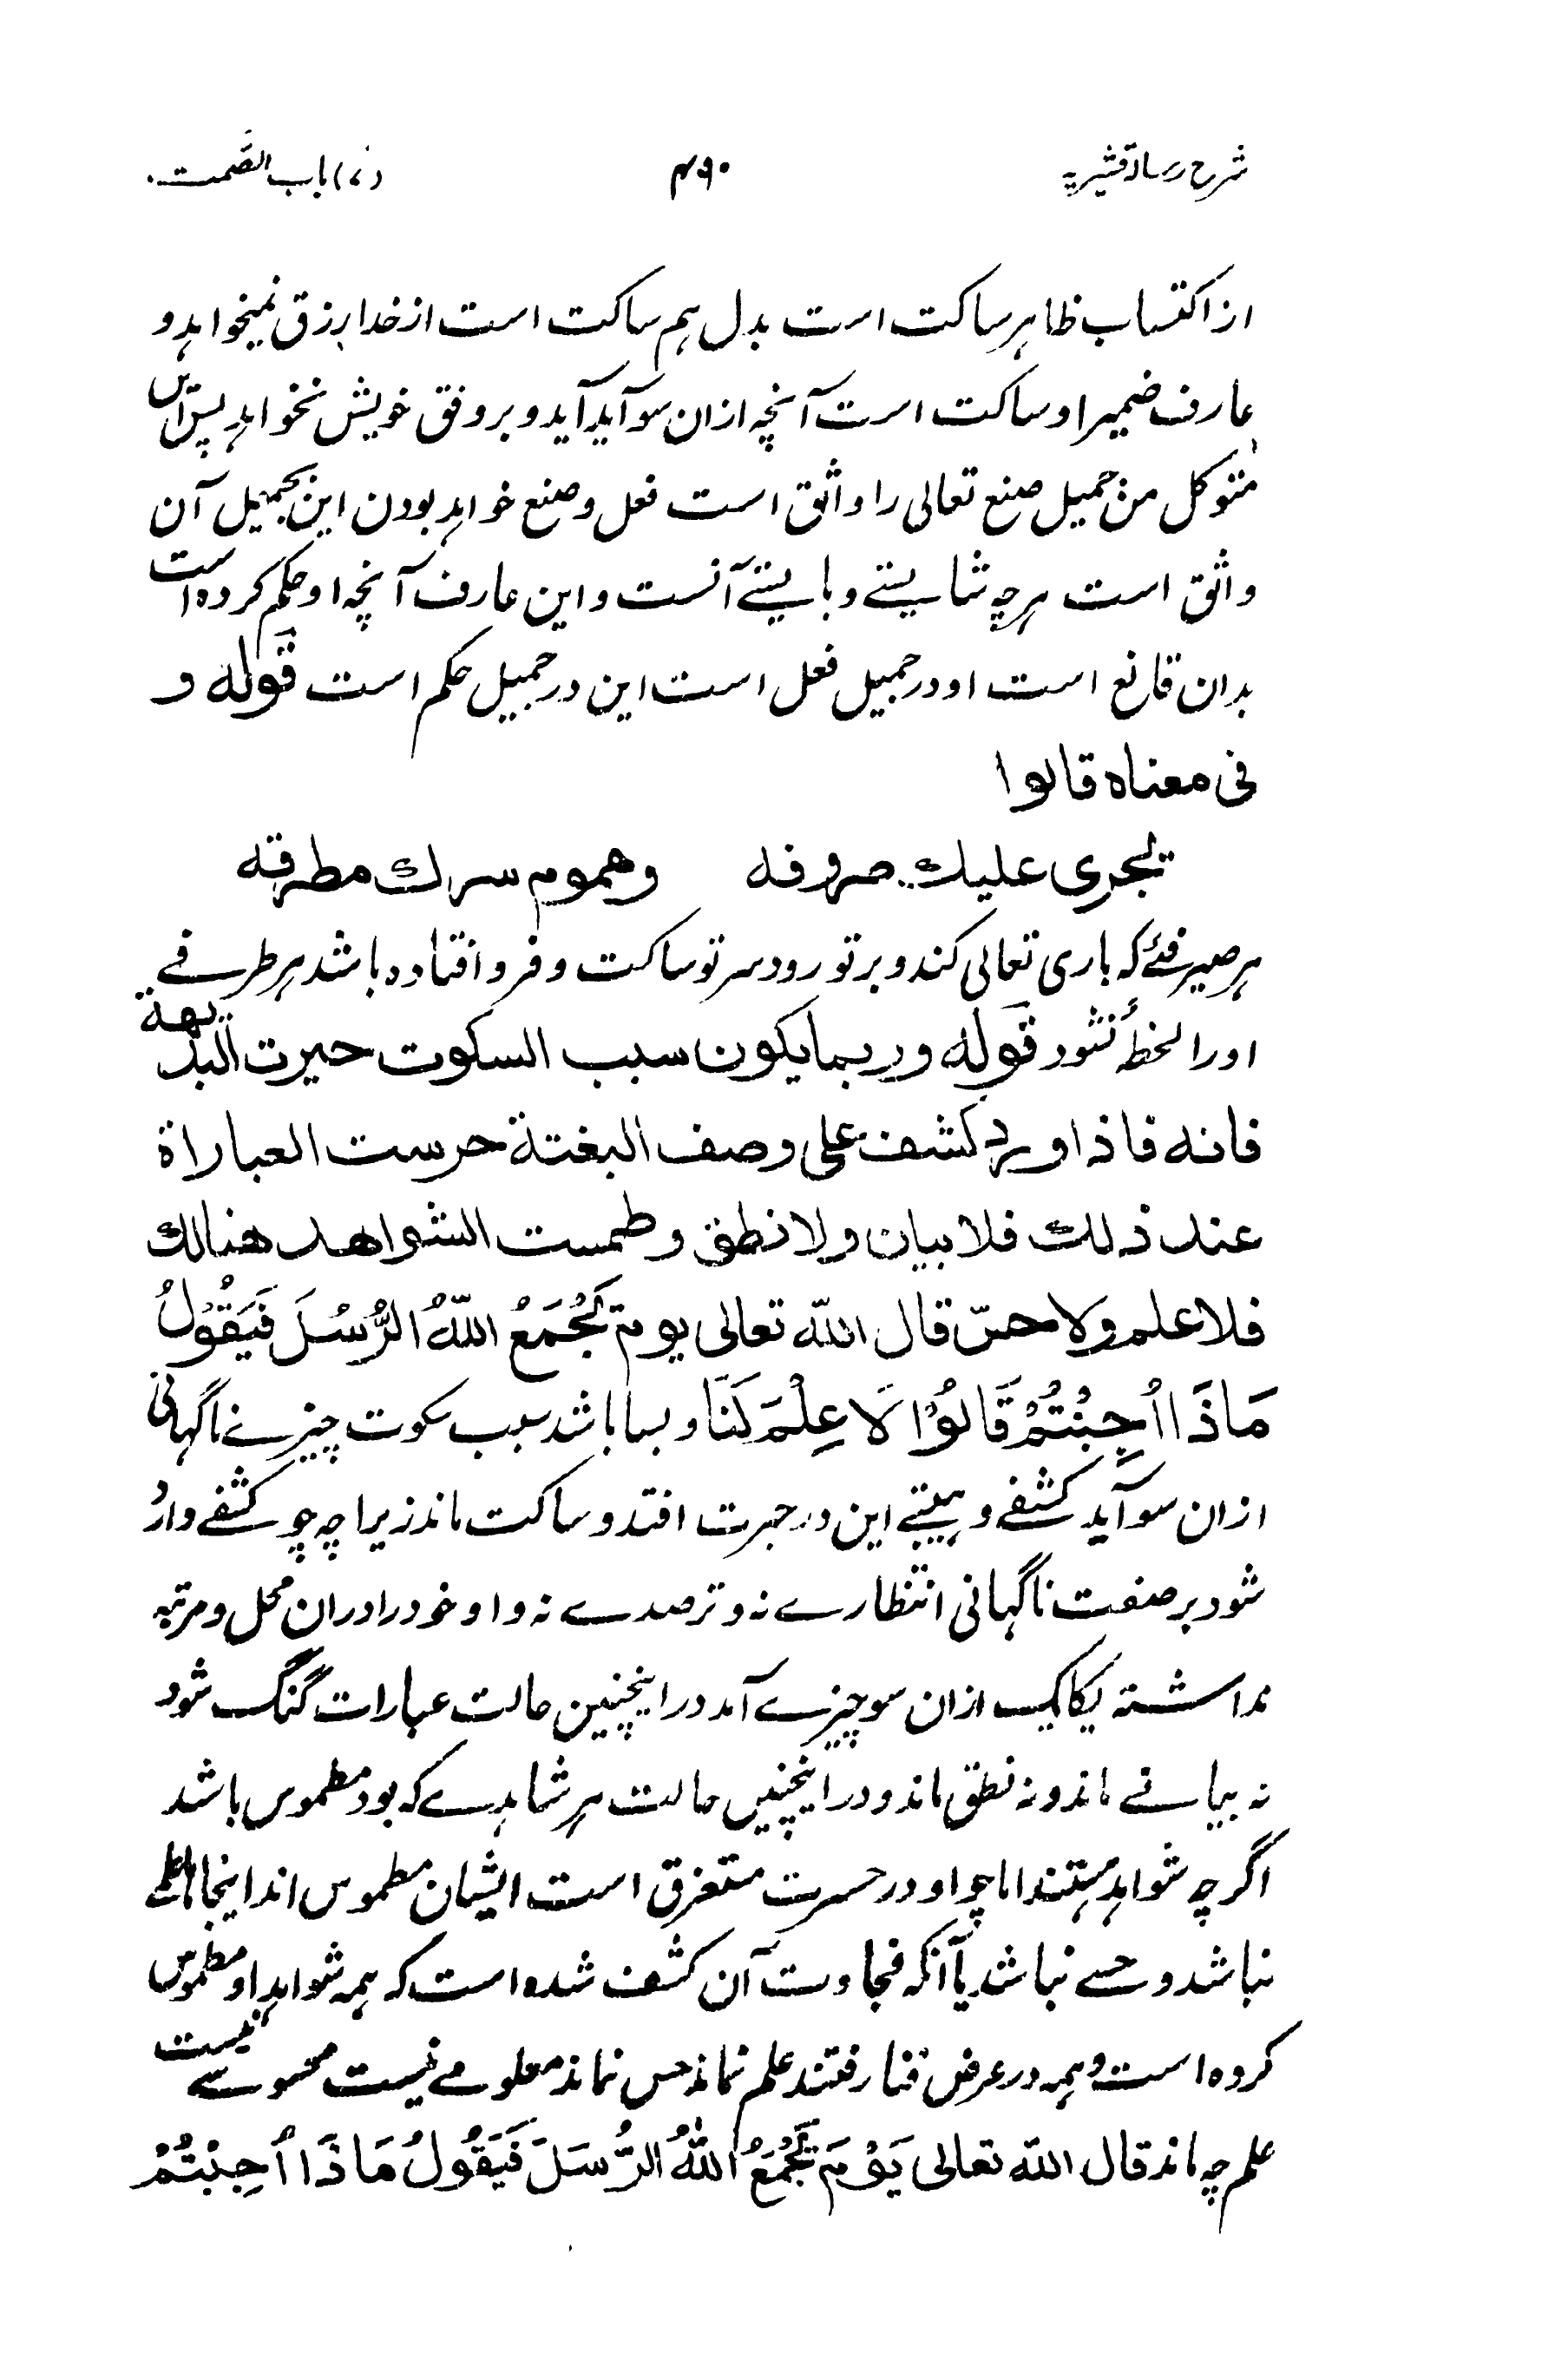 شرح رسالۂ قشیریہ ۴۹۰ (۷) باب الصَّمت
از اکتساب ظاہر ساکت است بدل ہم ساکت است از خدا رزق نمیخواہد و
عارف ضمیر او ساکت است آنچہ ازان سو آید آید و بر وفق خویش نخواہد پس این
متوکل من جمیل صنع تعالی را واثق است فعل و صنع خواہد بودن این بجمیل آن
واثق است ہرچہ شایستے و بایستے آنست و این عارف آنچہ او حکم کردہ است
بدان قانع است او در جمیل فعل است این در جمیل حکم است قوله و
فی معناه قالوا
تجری علیك صروفه وهموم سرك مطرقه
ہر صیرفئے کہ باری تعالی کند و بر تو رود سر تو ساکت و فرو افتادہ باشد ہر طرفے
اورا لحظۂ نشود قوله وربما یکون سبب السکوت حیرت البدیهة
فانه فاذا ورد کشف علی وصف البغتة خرست العباراة
عند ذلك فلا بیان ولا نطق وطمست الشواهد هنالك
فلا علم ولا حسّ قال اللّه تعالی یوم یَجْمَعُ اللّهُ الرُّسُلَ فَیَقُوْلُ
مَاذَا اُجِبْتُمْ قَالُوْا لَا عِلْمَ لَنَا و بسا باشد سبب سکوت چیزے ناگہانی
ازان سو آید کشفے و ہیبتے این در حیرت افتد و ساکت ماند زیراچہ چو کشفے وارد
شود بر صفت ناگہانی انتظارے نہ و ترصدے نہ و او خود را دران محل و مرتبہ
نداشتہ یکایک ازان سو چیزے آمد در اینچنین حالت عبارات گنگ شود
نہ بیانے ماند و نہ نطق ماند و در اینچنین حالت ہر شاہدے کہ بود مطموس باشد
اگرچہ شواہد ہستند اما چو او در حسرت مستغرق است ایشان مطموس اند اینجا علمے
نباشد و حسے نباشد یا آنکہ فجاوت آن کشف شدہ است کہ ہمہ شواہد او مطموس
کردہ است و ہمہ در عرض فنا رفتند علم نماند حس نماند معلومے نیست محسوسے نیست
علم چہ ماند قال اللّه تعالی یَوْمَ یَجْمَعُ اللّٰهُ الرُّسُلَ فَیَقُوْلُ مَاذَا اُجِبْتُمْ